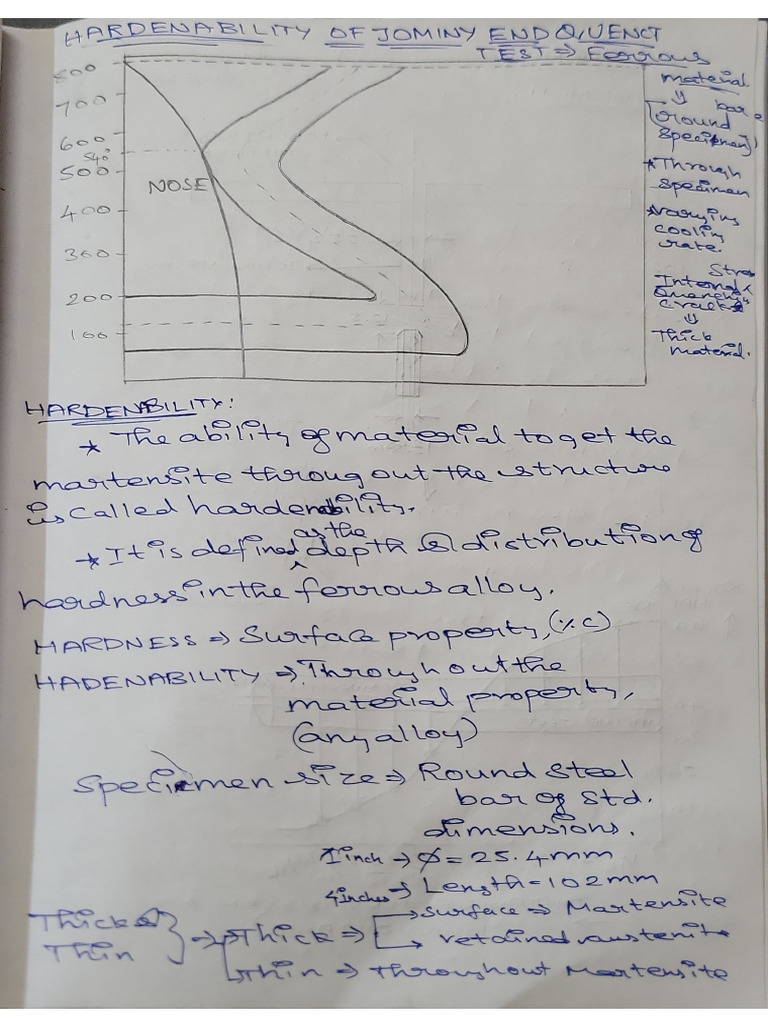 HARDENABILITY OF JOMINY END QUENCT
TEST ⇒ Ferrous
material
⇓ bar
[round
specimen]
* Through
specimen
* Varying
cooling
rate.
Stres
Internal &
Quenching
cracks
⇓
Thick
material.
800
700
600
540
500
400
300
200
100
NOSE
HARDENBILITY:
* The ability of material to get the
martensite throug out the structure
is called hardenability.
* It is defined as the depth & distribution of
hardness in the ferrous alloy.
HARDNESS ⇒ Surface property, (% C)
HADENABILITY ⇒ Through out the
material property,
(any alloy)
Specimen size ⇒ Round steel
bar of std.
dimensions.
1 inch → ϕ = 25.4mm
4 inches → Length = 102 mm
Thick &
Thin } ⇒ Thick ⇒ → surface ⇒ Martensite
→ retained austenite
Thin ⇒ Throughout Martensite